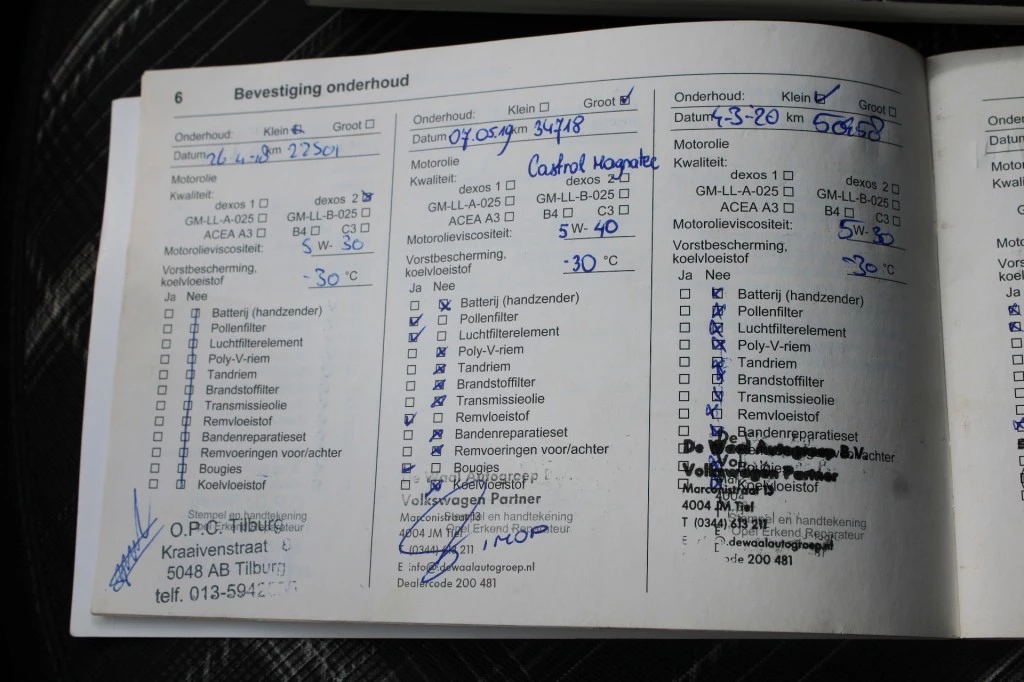 6 Bevestiging onderhoud
Onderhoud: Klein Groot
Datum 26-4-18 km 22501
Motorolie
Kwaliteit:
dexos 1 dexos 2
GM-LL-A-025 GM-LL-B-025
ACEA A3 B4 C3
Motorolieviscositeit: 5 W- 30
Vorstbescherming,
koelvloeistof -30 °C
Ja Nee
Batterij (handzender)
Pollenfilter
Luchtfilterelement
Poly-V-riem
Tandriem
Brandstoffilter
Transmissieolie
Remvloeistof
Bandenreparatieset
Remvoeringen voor/achter
Bougies
Koelvloeistof
Stempel en handtekening
Opel Erkend Reparateur
O.P.C. Tilburg
Kraaivenstraat
5048 AB Tilburg
telf. 013-5942
Onderhoud: Klein Groot
Datum 07.05.19 km 34718
Motorolie
Castrol Magnatec
Kwaliteit:
dexos 1 dexos 2
GM-LL-A-025 GM-LL-B-025
ACEA A3 B4 C3
Motorolieviscositeit: 5 W- 40
Vorstbescherming,
koelvloeistof -30 °C
Ja Nee
Batterij (handzender)
Pollenfilter
Luchtfilterelement
Poly-V-riem
Tandriem
Brandstoffilter
Transmissieolie
Remvloeistof
Bandenreparatieset
Remvoeringen voor/achter
Bougies
Koelvloeistof
de Waal Autogroep
Volkswagen Partner
Marconistraat 13
Stempel en handtekening
4004 JM Tiel
Opel Erkend Reparateur
(0344) 613 211
E info@dewaalautogroep.nl
Dealercode 200 481
Onderhoud: Klein Groot
Datum 4-3-20 km 50458
Motorolie
Kwaliteit:
dexos 1 dexos 2
GM-LL-A-025 GM-LL-B-025
ACEA A3 B4 C3
Motorolieviscositeit: 5 W- 30
Vorstbescherming,
koelvloeistof -30 °C
Ja Nee
Batterij (handzender)
Pollenfilter
Luchtfilterelement
Poly-V-riem
Tandriem
Brandstoffilter
Transmissieolie
Remvloeistof
Bandenreparatieset
De Waal Autogroep B.V.
achter
Volkswagen Partner
Koelvloeistof
Marconistraat 13
4004 JM Tiel
Stempel en handtekening
T (0344) 613 211
Opel Erkend Reparateur
E .dewaalautogroep.nl
code 200 481